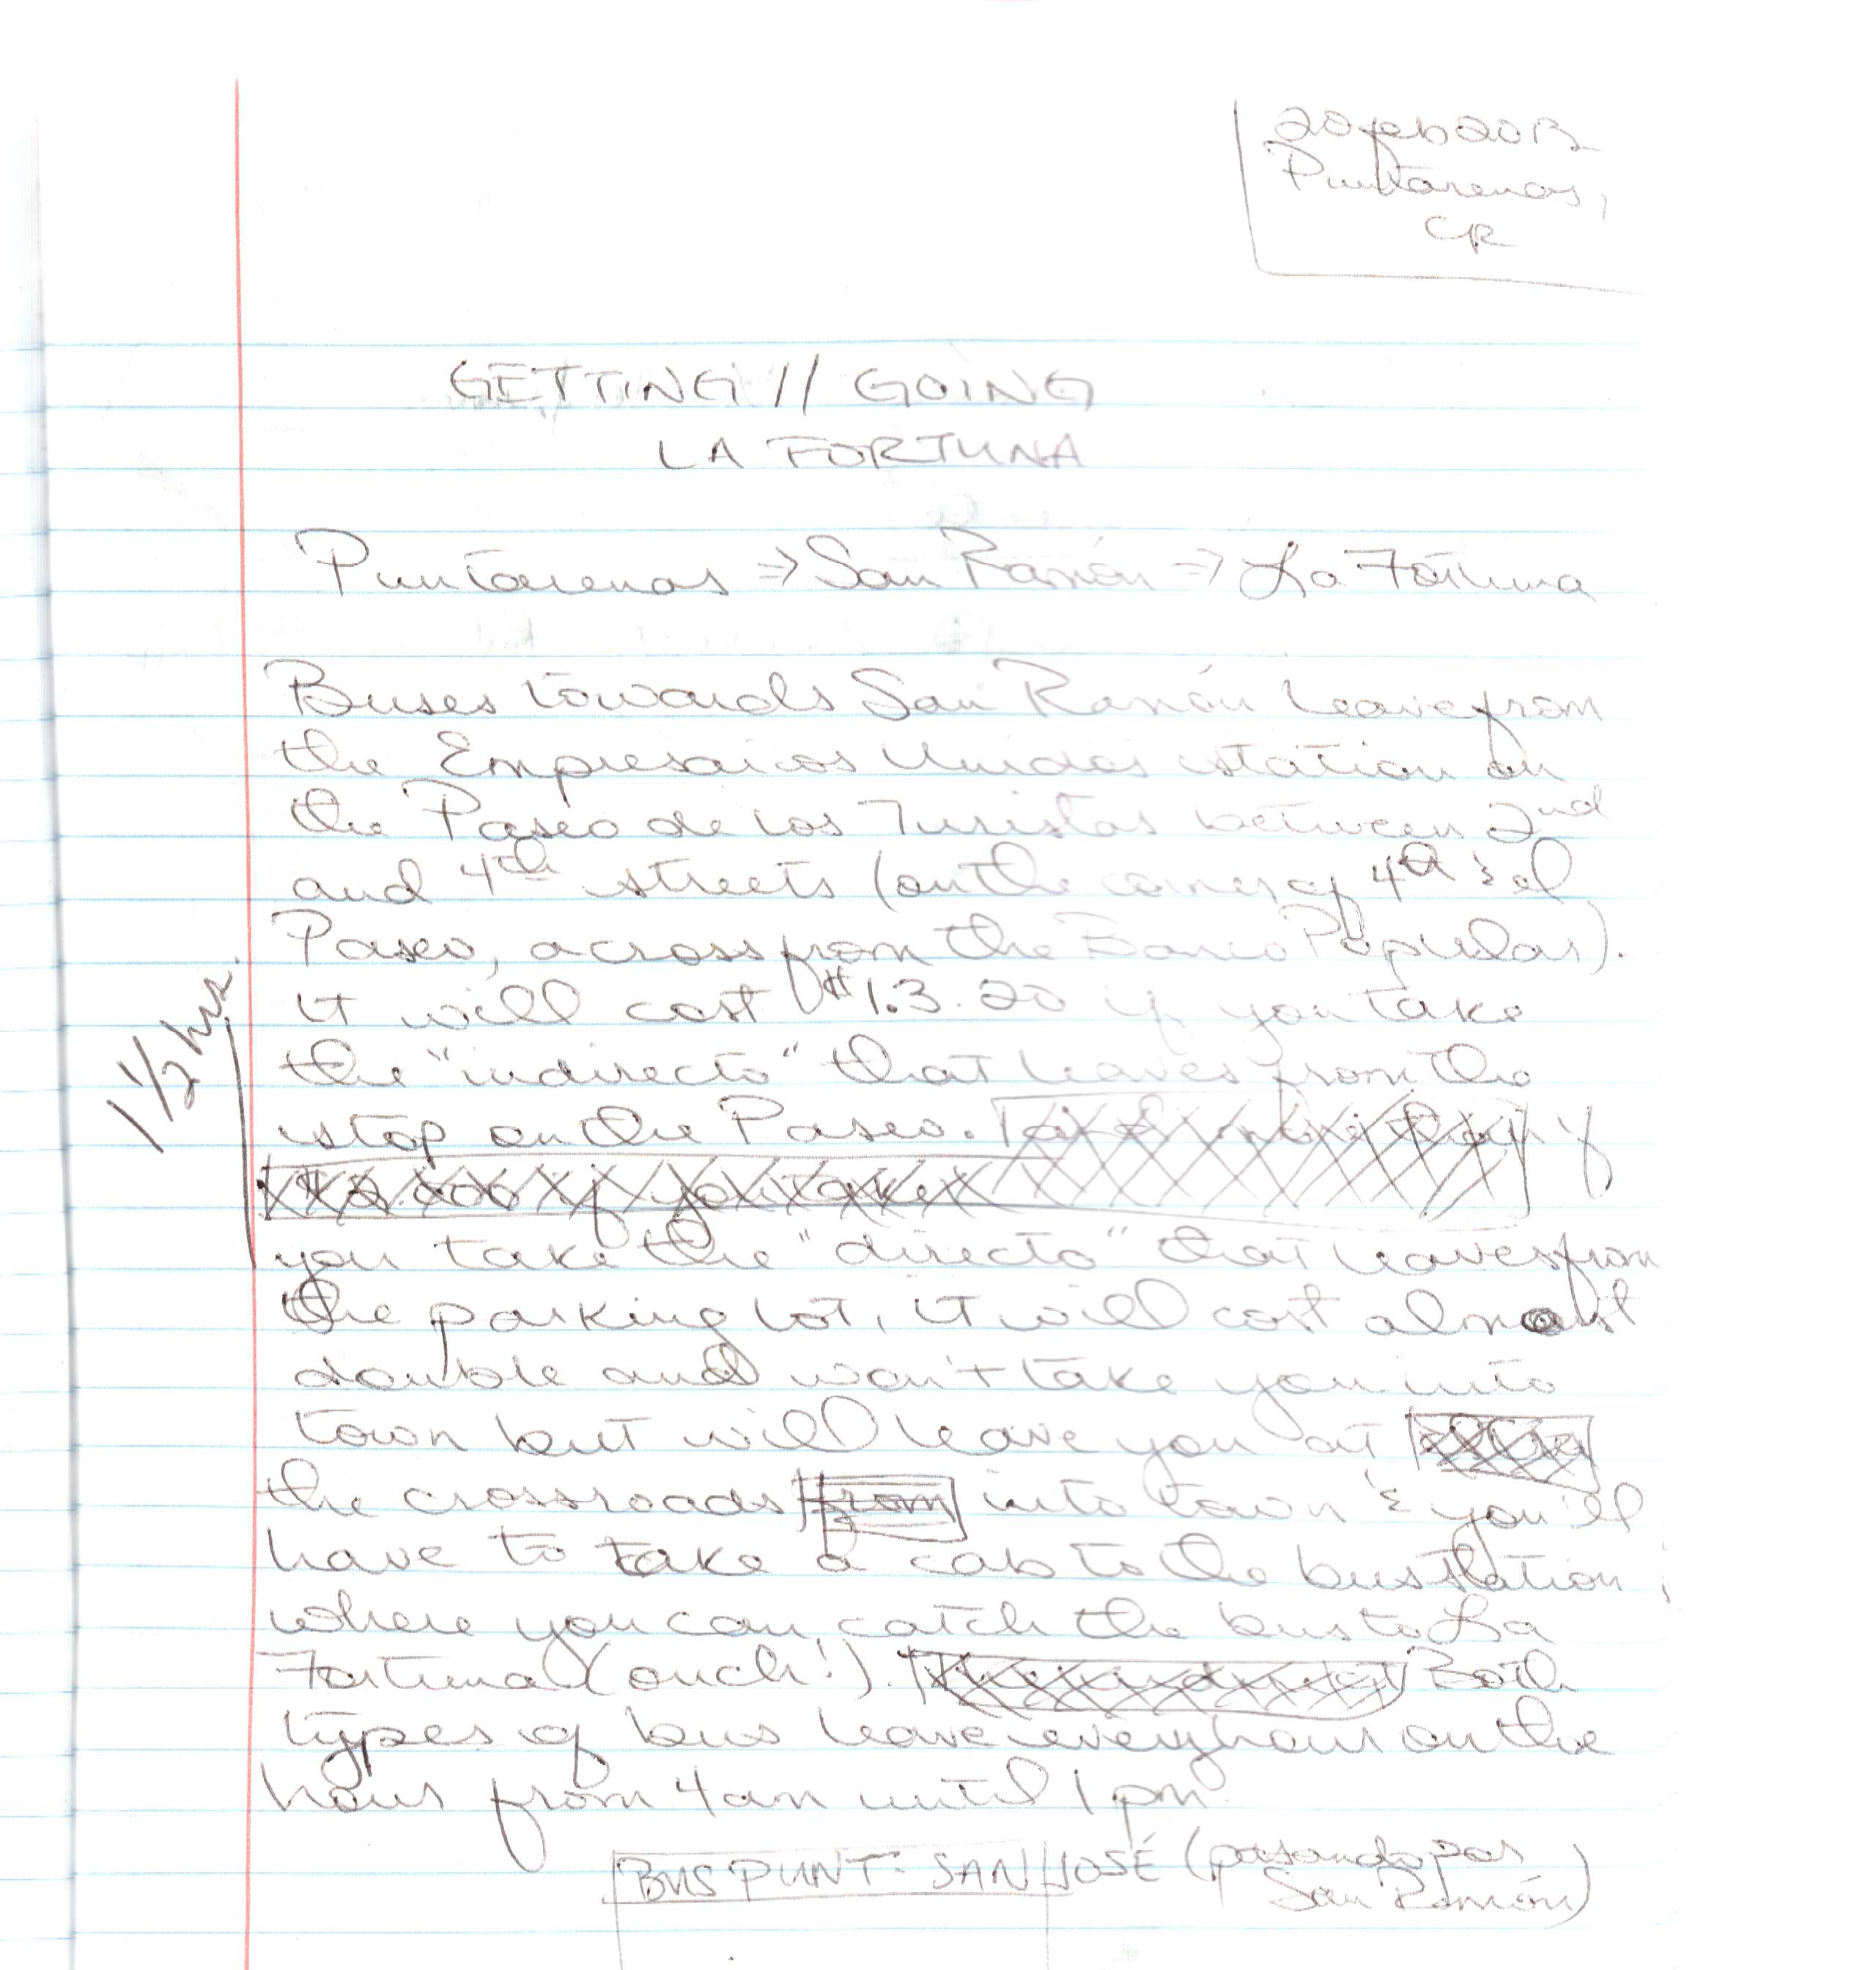 20feb2013
Puntarenas,
CR
GETTING // GOING
LA FORTUNA
Puntarenas => San Ramón => La Fortuna
Buses towards San Ramón leave from
the Empresarios Unidos station on
the Paseo de los Turistas between 2nd
and 4th streets (on the corner of 4th & el
Paseo, across from the Banco Popular).
it will cost $1.3.20 if you take
the "indirecto" that leaves from the
1 1/2 hrs.
stop on the Paseo. if
if you take
you take the "directo" that leaves from
the parking lot, it will cost almost
double and won't take you into
town but will leave you at
the crossroads from into town & you'll
have to take a cab to the bus station,
where you can catch the bus to La
Fortuna (ouch!). Both
types of bus leave every hour on the
hour from 4am until 1pm.
BUS PUNT - SAN JOSÉ (pasando por
San Ramón)